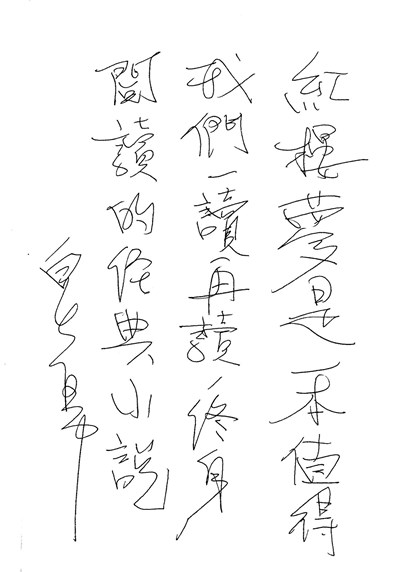 紅樓夢是一本值得
我們一讀再讀終身
閱讀的經典小說
白先勇